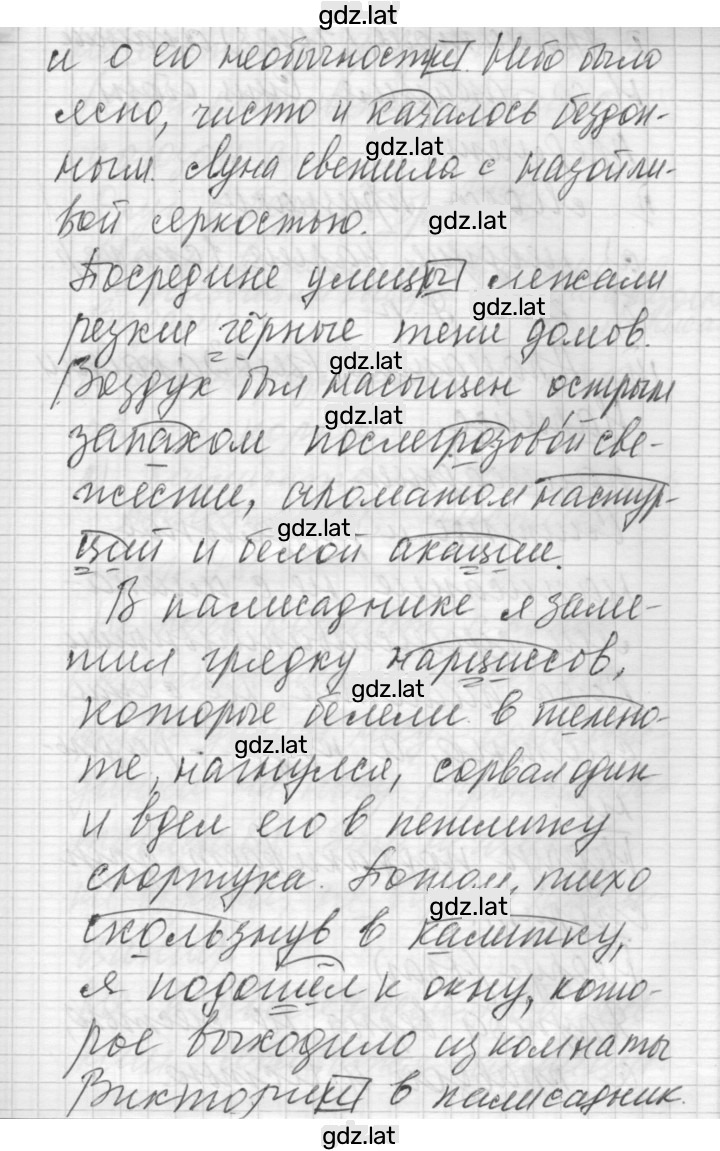 gdz.lat
и о его необычности. Небо было
ясно, чисто и казалось бездон-
gdz.lat
ным. Луна светила с назойли-
вой яркостью.
gdz.lat
Посредине улицы лежали
gdz.lat
резкие чёрные тени домов.
gdz.lat
Воздух был насыщен острым
gdz.lat
запахом послегрозовой све-
жести, ароматом настур-
gdz.lat
ций и белой акации.
В палисаднике я заме-
тил грядку нарциссов,
gdz.lat
которые белели в темно-
gdz.lat
те, нагнулся, сорвал один
и вдел его в петлицу
сюртука. Потом, тихо
gdz.lat
скользнув в калитку,
я подошёл к окну, кото-
рое выходило из комнаты
Виктории в палисадник.
gdz.lat